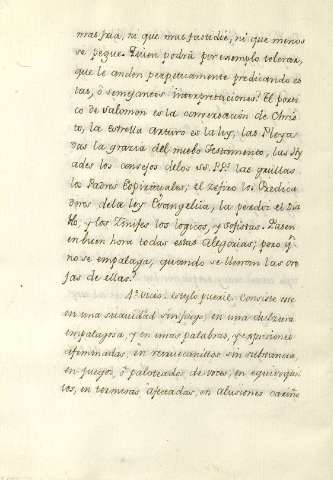 mas fria, ni que mas fastidie, ni que menos
se pegue. Quien podrà por exemplo tolerar,
que le anden perpetuamente predicando es
tas, ò semejantes interpretaciones? El porti
co de Salomon es la conversación de Chris
to, la estrella Arturo es la ley, las Pleya
das la gracia del nuebo Testamento, las Hy
ades los consejos delos SS. PPs. las grullas
los Padres Espirituales; el zefiro los Predica
dores dela ley Evangelica, la perdiz el Dia
blo, y los Zinifes los logicos, y sofistas. Pasen
en buen hora todas estas Alegorias; pero qn.
no se empalaga, quando se llenan las oro
jas de ellas?
4º. vicio: estylo pueril. Consiste este
en una suavidad sin jugo, en una dulzura
empalagosa, y en unas palabras, y expresiones
afeminadas, en retruecanillos sin substancia,
en juegos, ò paloteados de voces, en equivoqui
llos, en terneras afectadas, en alusiones cariño